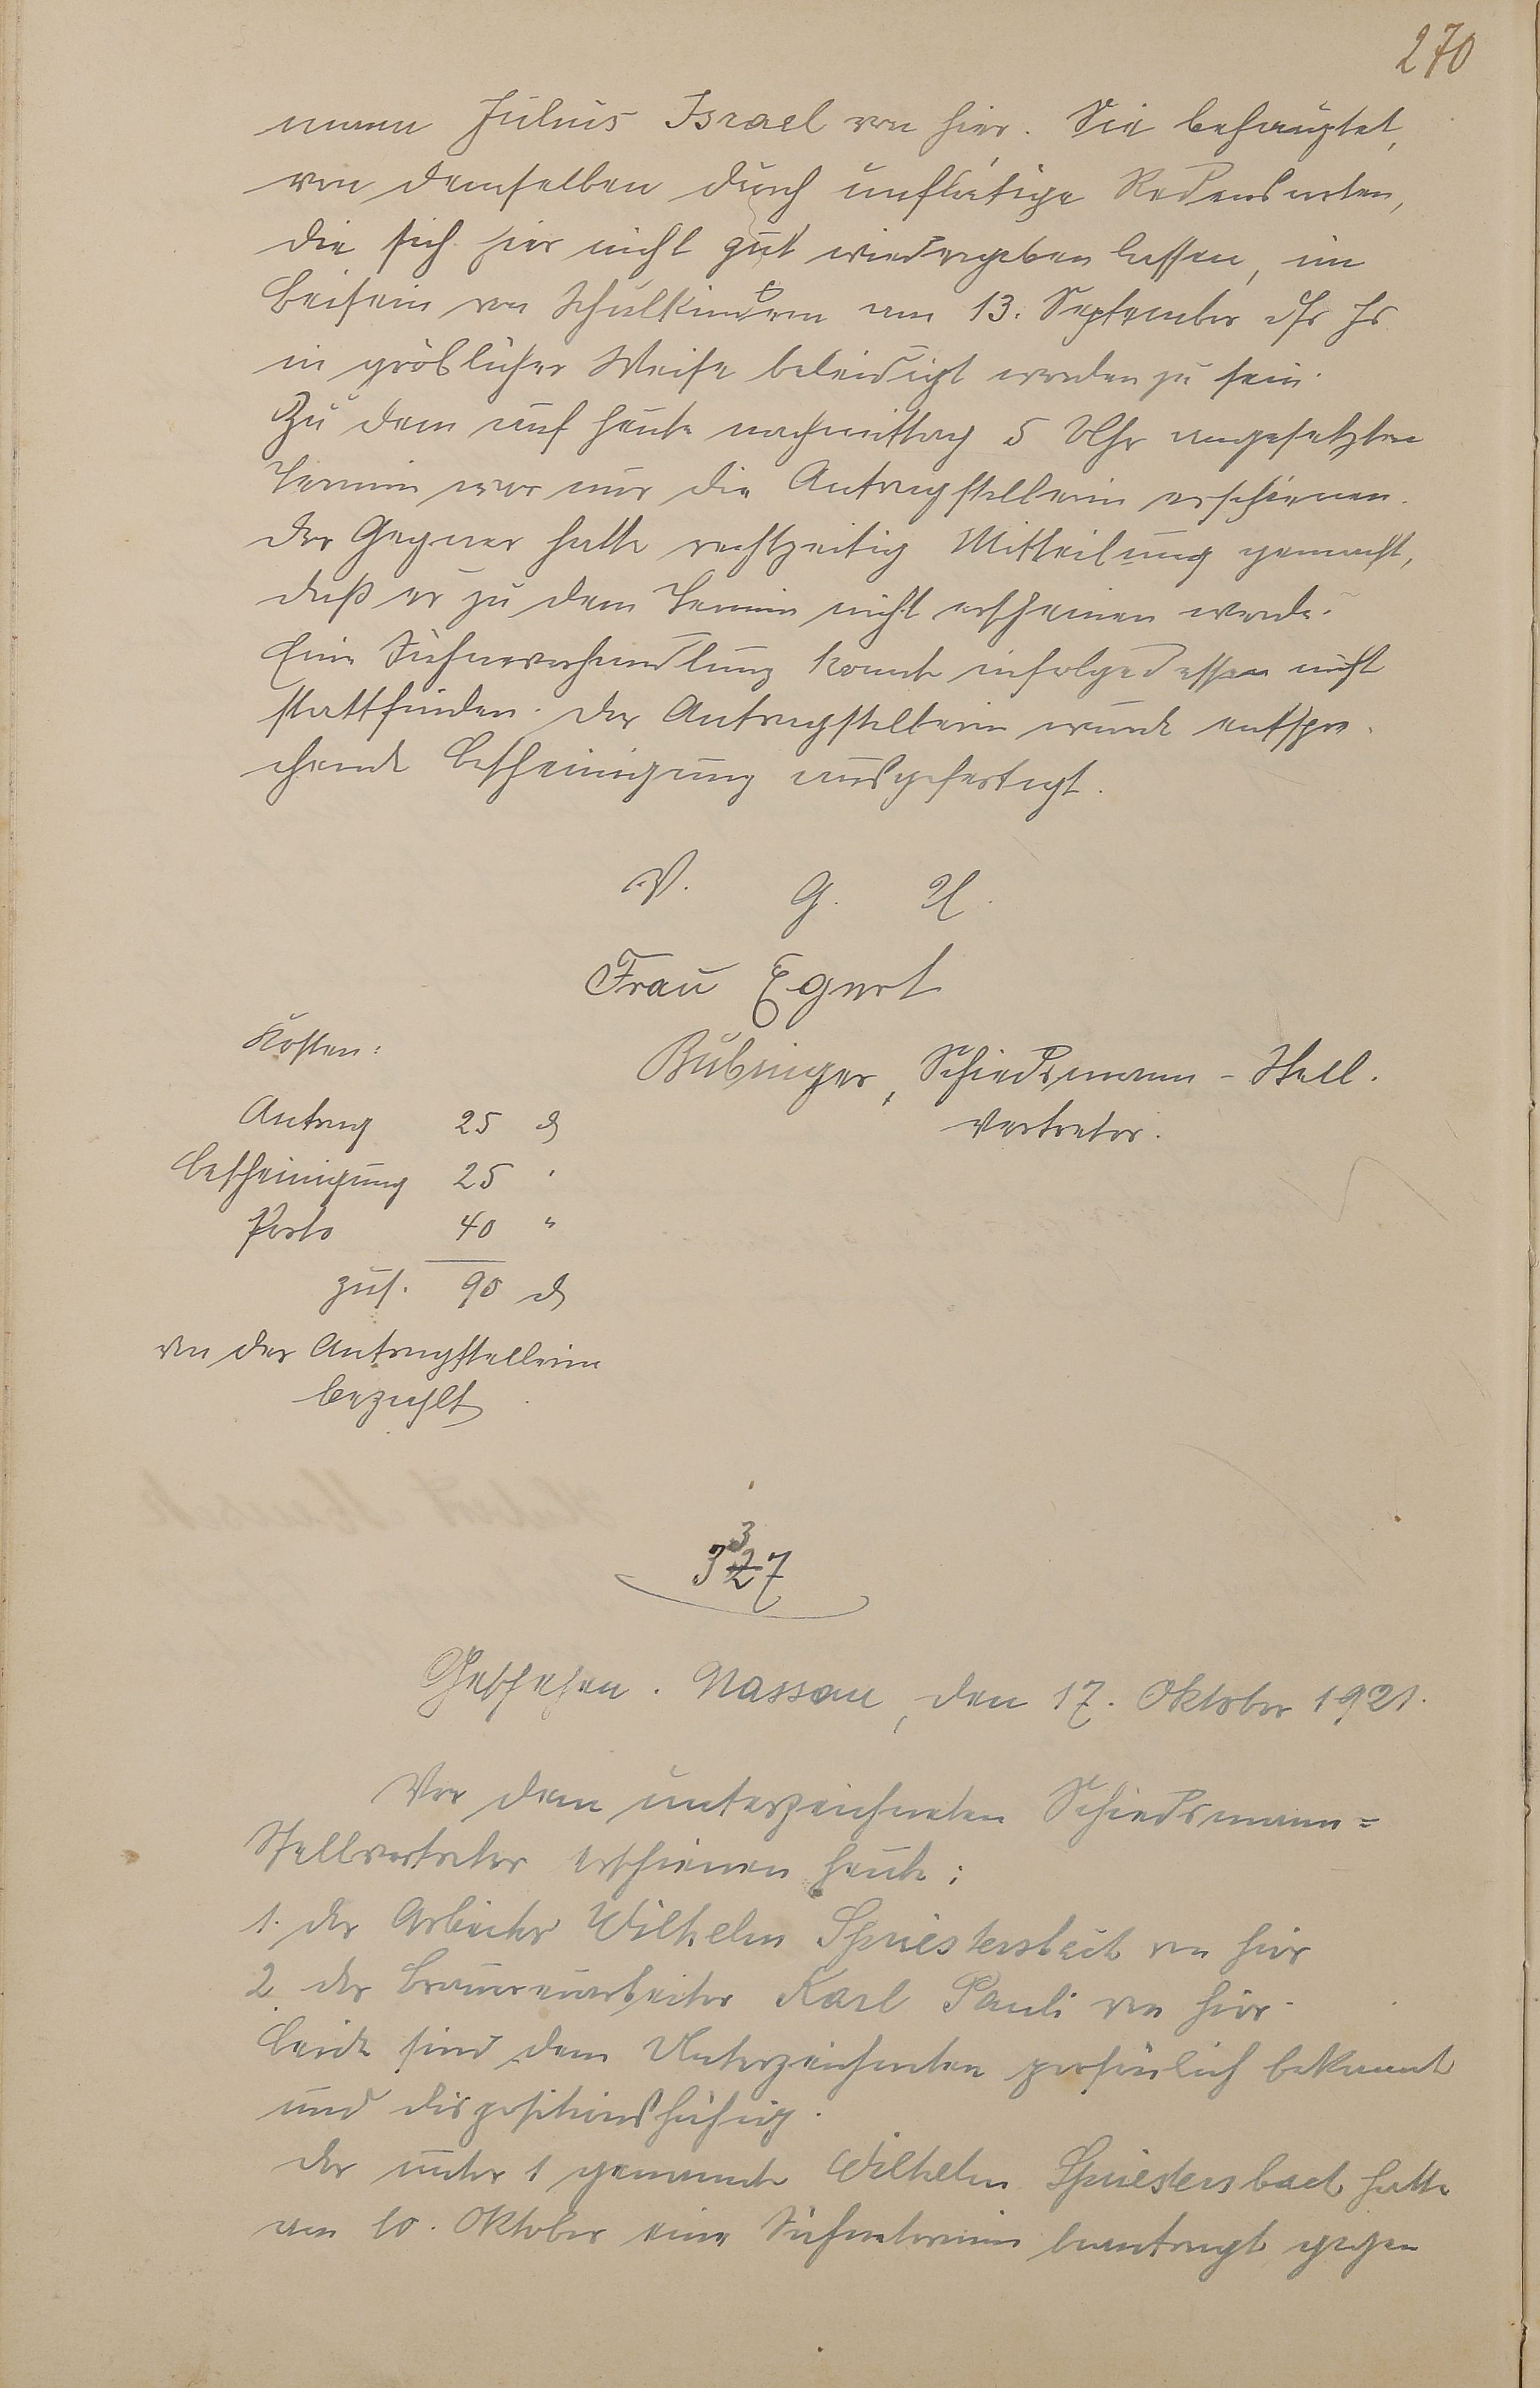 270
mann Julius Israel von hier. Sie behauptet,
von demselben durch unflätige Redensarten,
die sich hier nicht gut wiedergeben lassen, im
Beisein von Schulkindern am 13. September ds Js
in gröblicher Weise beleidigt worden zu sein.
Zu dem auf heute nachmittag 5 Uhr angesetzten
Termin war nur die Antragstellerin erschienen.
Der Gegner hatte rechtzeitig Mitteilung gemacht,
daß er zu dem Termin nicht erscheinen werde.
Eine Sühneverhandlung konnte infolgedessen nicht
stattfinden. Der Antragstellerin wurde entspre-
chende Bescheinigung ausgefertigt.
V. G. U.
Frau Egert
Bubinger, Schiedsmann-Stell.
vertreter.
Kosten:
Antrag 25 ₰
Bescheinigung 25 "
Porto 40 "
zus. 90 ₰
von der Antragstellerin
bezahlt
3
327
Geschehen. Nassau, den 17. Oktober 1921.
Vor dem unterzeichneten Schiedsmann=
Stellvertreter erschienen heute:
1. der Arbeiter Wilhelm Spriestersbach von hier
2. der Brauereiarbeiter Karl Pauli von hier.
Beide sind dem Unterzeichneten persönlich bekannt
und dispositionsfähig.
Der unter 1 genannte Wilhelm Spriestersbach hatte
am 10. Oktober eine Sühnetermin beantragt gegen